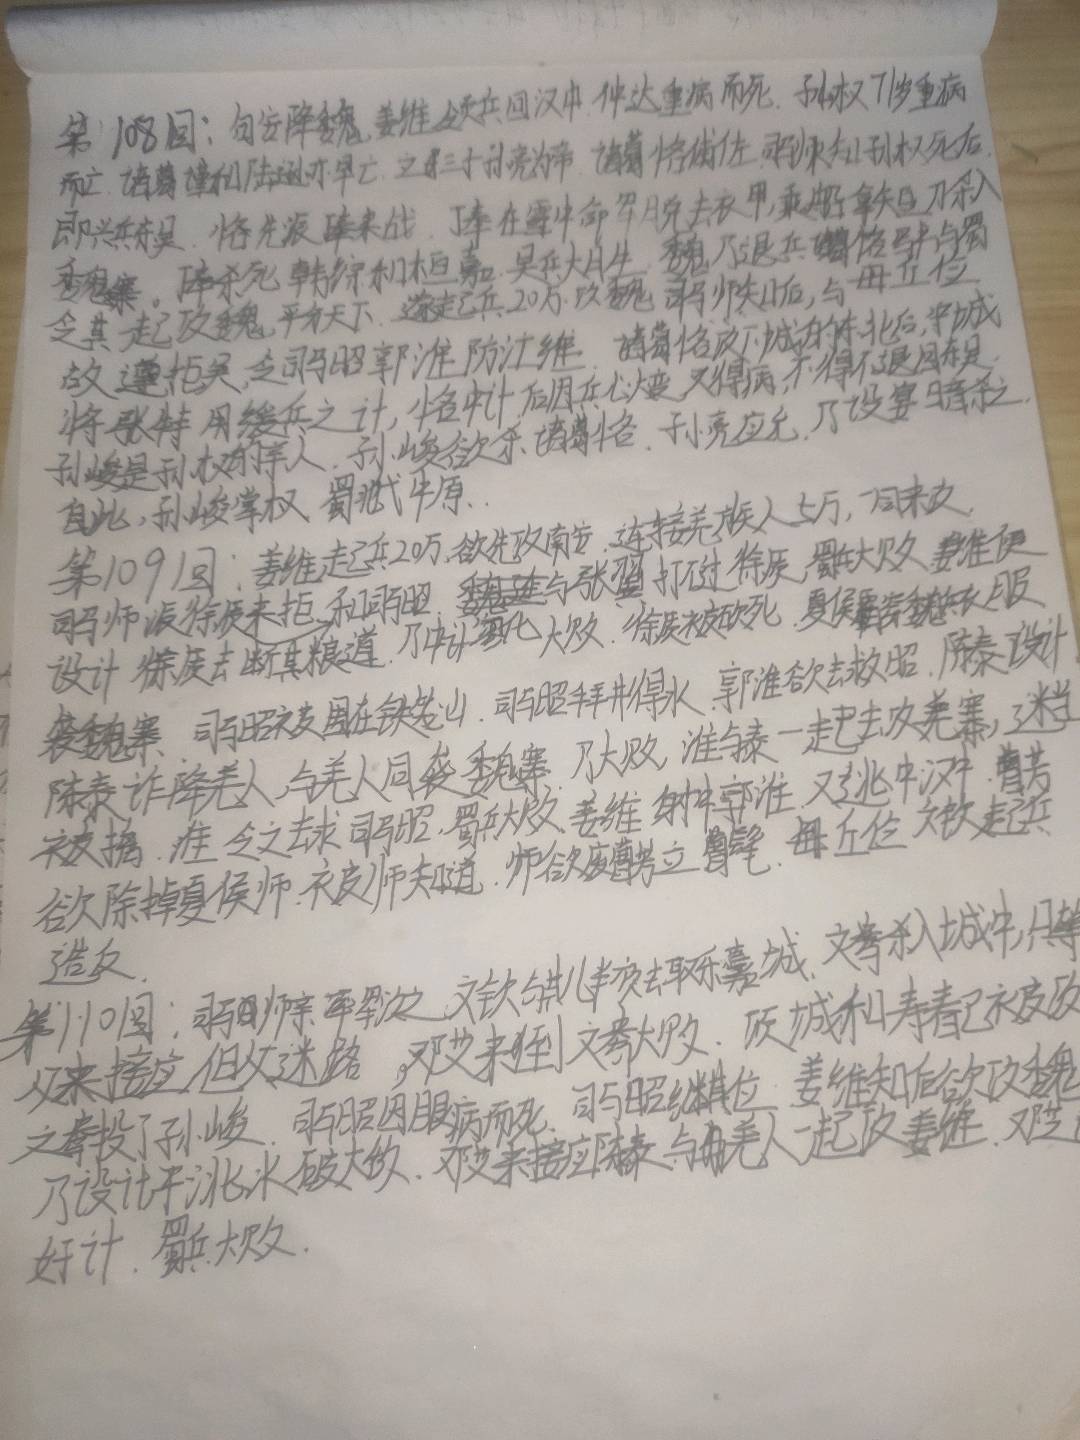 第108回：句安降魏，姜维领兵回汉中，仲达重病而死．孙权71岁重病
而亡．诸葛瑾和陆逊亦早亡．立第三子孙亮为帝．诸葛恪辅佐．司马师知孙权死后，
即兴兵东吴．恪先派丁奉来战．丁奉在雪中命军脱去衣甲，乘船拿短刀杀入
魏寨．丁奉杀死韩综和桓嘉．吴兵大胜．魏乃退兵．诸葛恪与蜀
令其起攻魏，平分天下．遂起兵20万攻魏．司马师知后，与毌丘俭
故遵拒吴，令司马昭郭淮防江维．诸葛恪攻下城东北后，守城
将张特用缓兵之计，恪中计，后因兵心大变，又得病，不得不退回东吴．
孙峻是孙权的亲人．孙峻欲杀诸葛恪．孙亮应允．乃设宴暗杀之．
自此，孙峻掌权，蜀北伐中原．
第109回：姜维起兵20万，欲先攻南安．连接羌族人5万，一同来攻．
司马师派徐质来拒，和司马昭．与张翼打不过徐质，蜀兵大败．姜维便
设计徐质去断其粮道．乃中计大败．徐质被砍死．夏侯霸穿魏兵衣服
袭魏寨．司马昭被围在铁笼山．司马昭拜井得水．郭淮欲去救昭．陈泰设计
陈泰诈降羌人，与羌人同袭魏寨．乃大败，淮与泰一起去攻羌寨，迷当
被擒．淮令之去求司马昭．蜀兵大败．姜维射中郭淮．又逃中汉中．曹芳
欲除掉夏侯师．被师知道．师欲废曹芳立曹髦．毌丘俭文钦起兵
造反．
第110回：司马师亲率军攻之，文钦与其儿去取乐嘉城．文鸯杀入城中，只等
父来接应．但父迷路，邓艾来到文鸯大败．项城和寿春已被攻
文鸯投了孙峻．司马昭因眼病而死．司马昭继其位．姜维知后欲攻魏
乃设计于洮水破大败．邓艾来接应陈泰与羌人一起攻姜维．邓艾
好计．蜀兵大败．